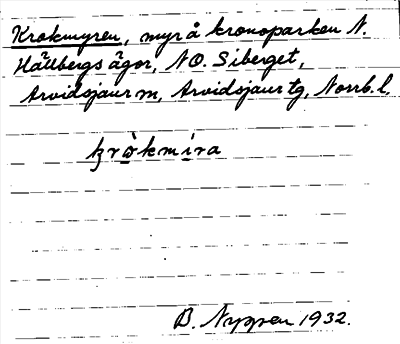 Krokmyren, myr å kronoparken N.
Hällbergs ägor, NO. Siberget,
Arvidsjaur m, Arvidsjaur tg, Norrb. l.
kròkmíra
B. Nygren 1932.